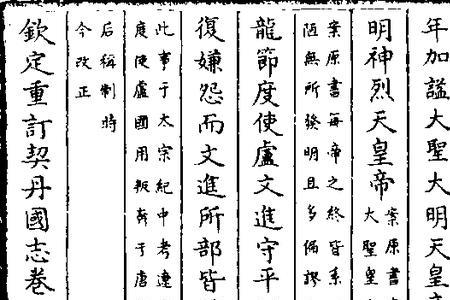 年加諡大聖大明天皇
明神烈天皇帝
案原書
大聖皇
案原書每帝之終皆系
陋無所發明且多偏謬
龍節度使盧文進守平
復嫌怨而文進所部皆
此事于太宗紀中考遼
度使盧國用叛奔于唐
后稱制時
今改正
欽定重訂契丹國志卷